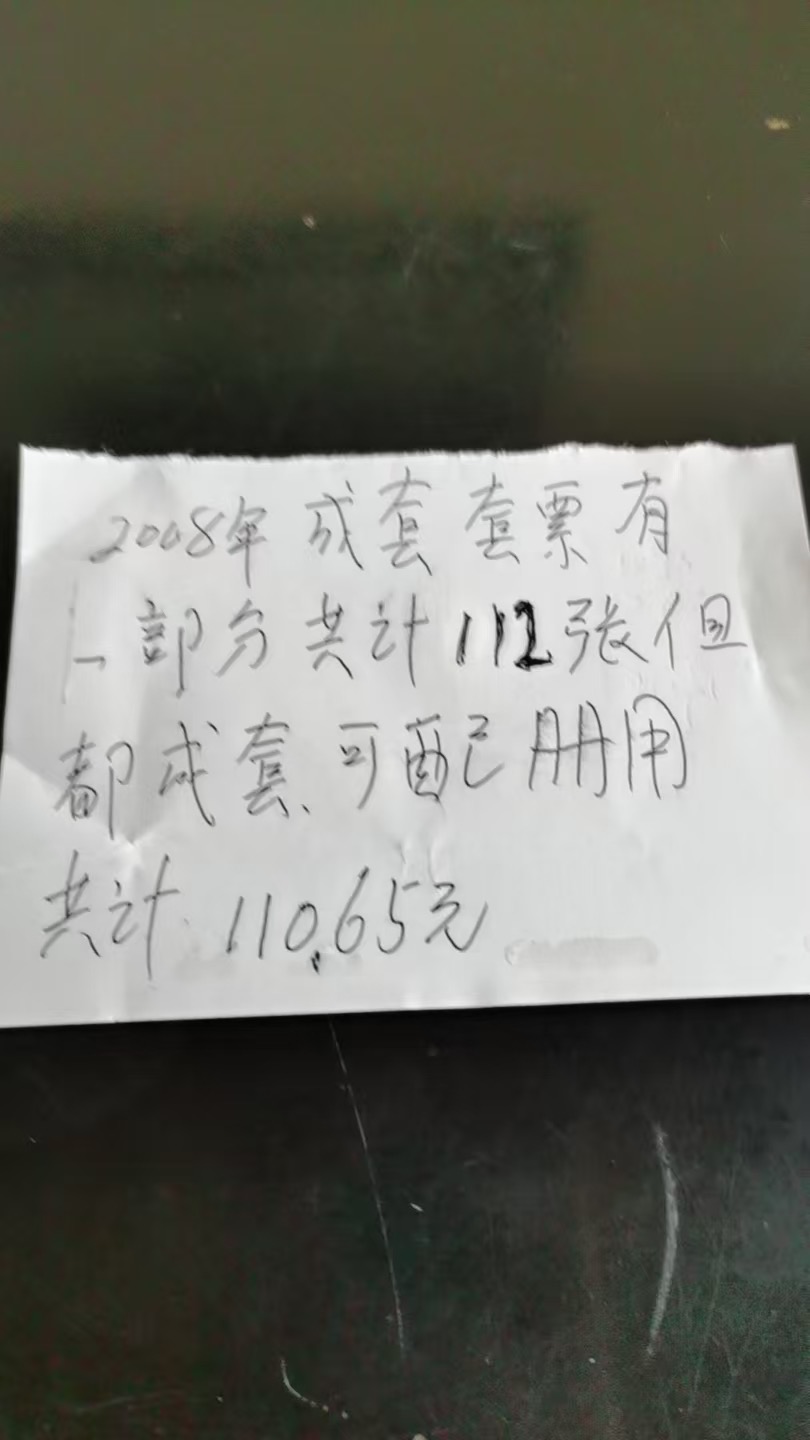 2008年成套套票有
一部分共计112张但
都成套、可配己册用
共计 110.65元